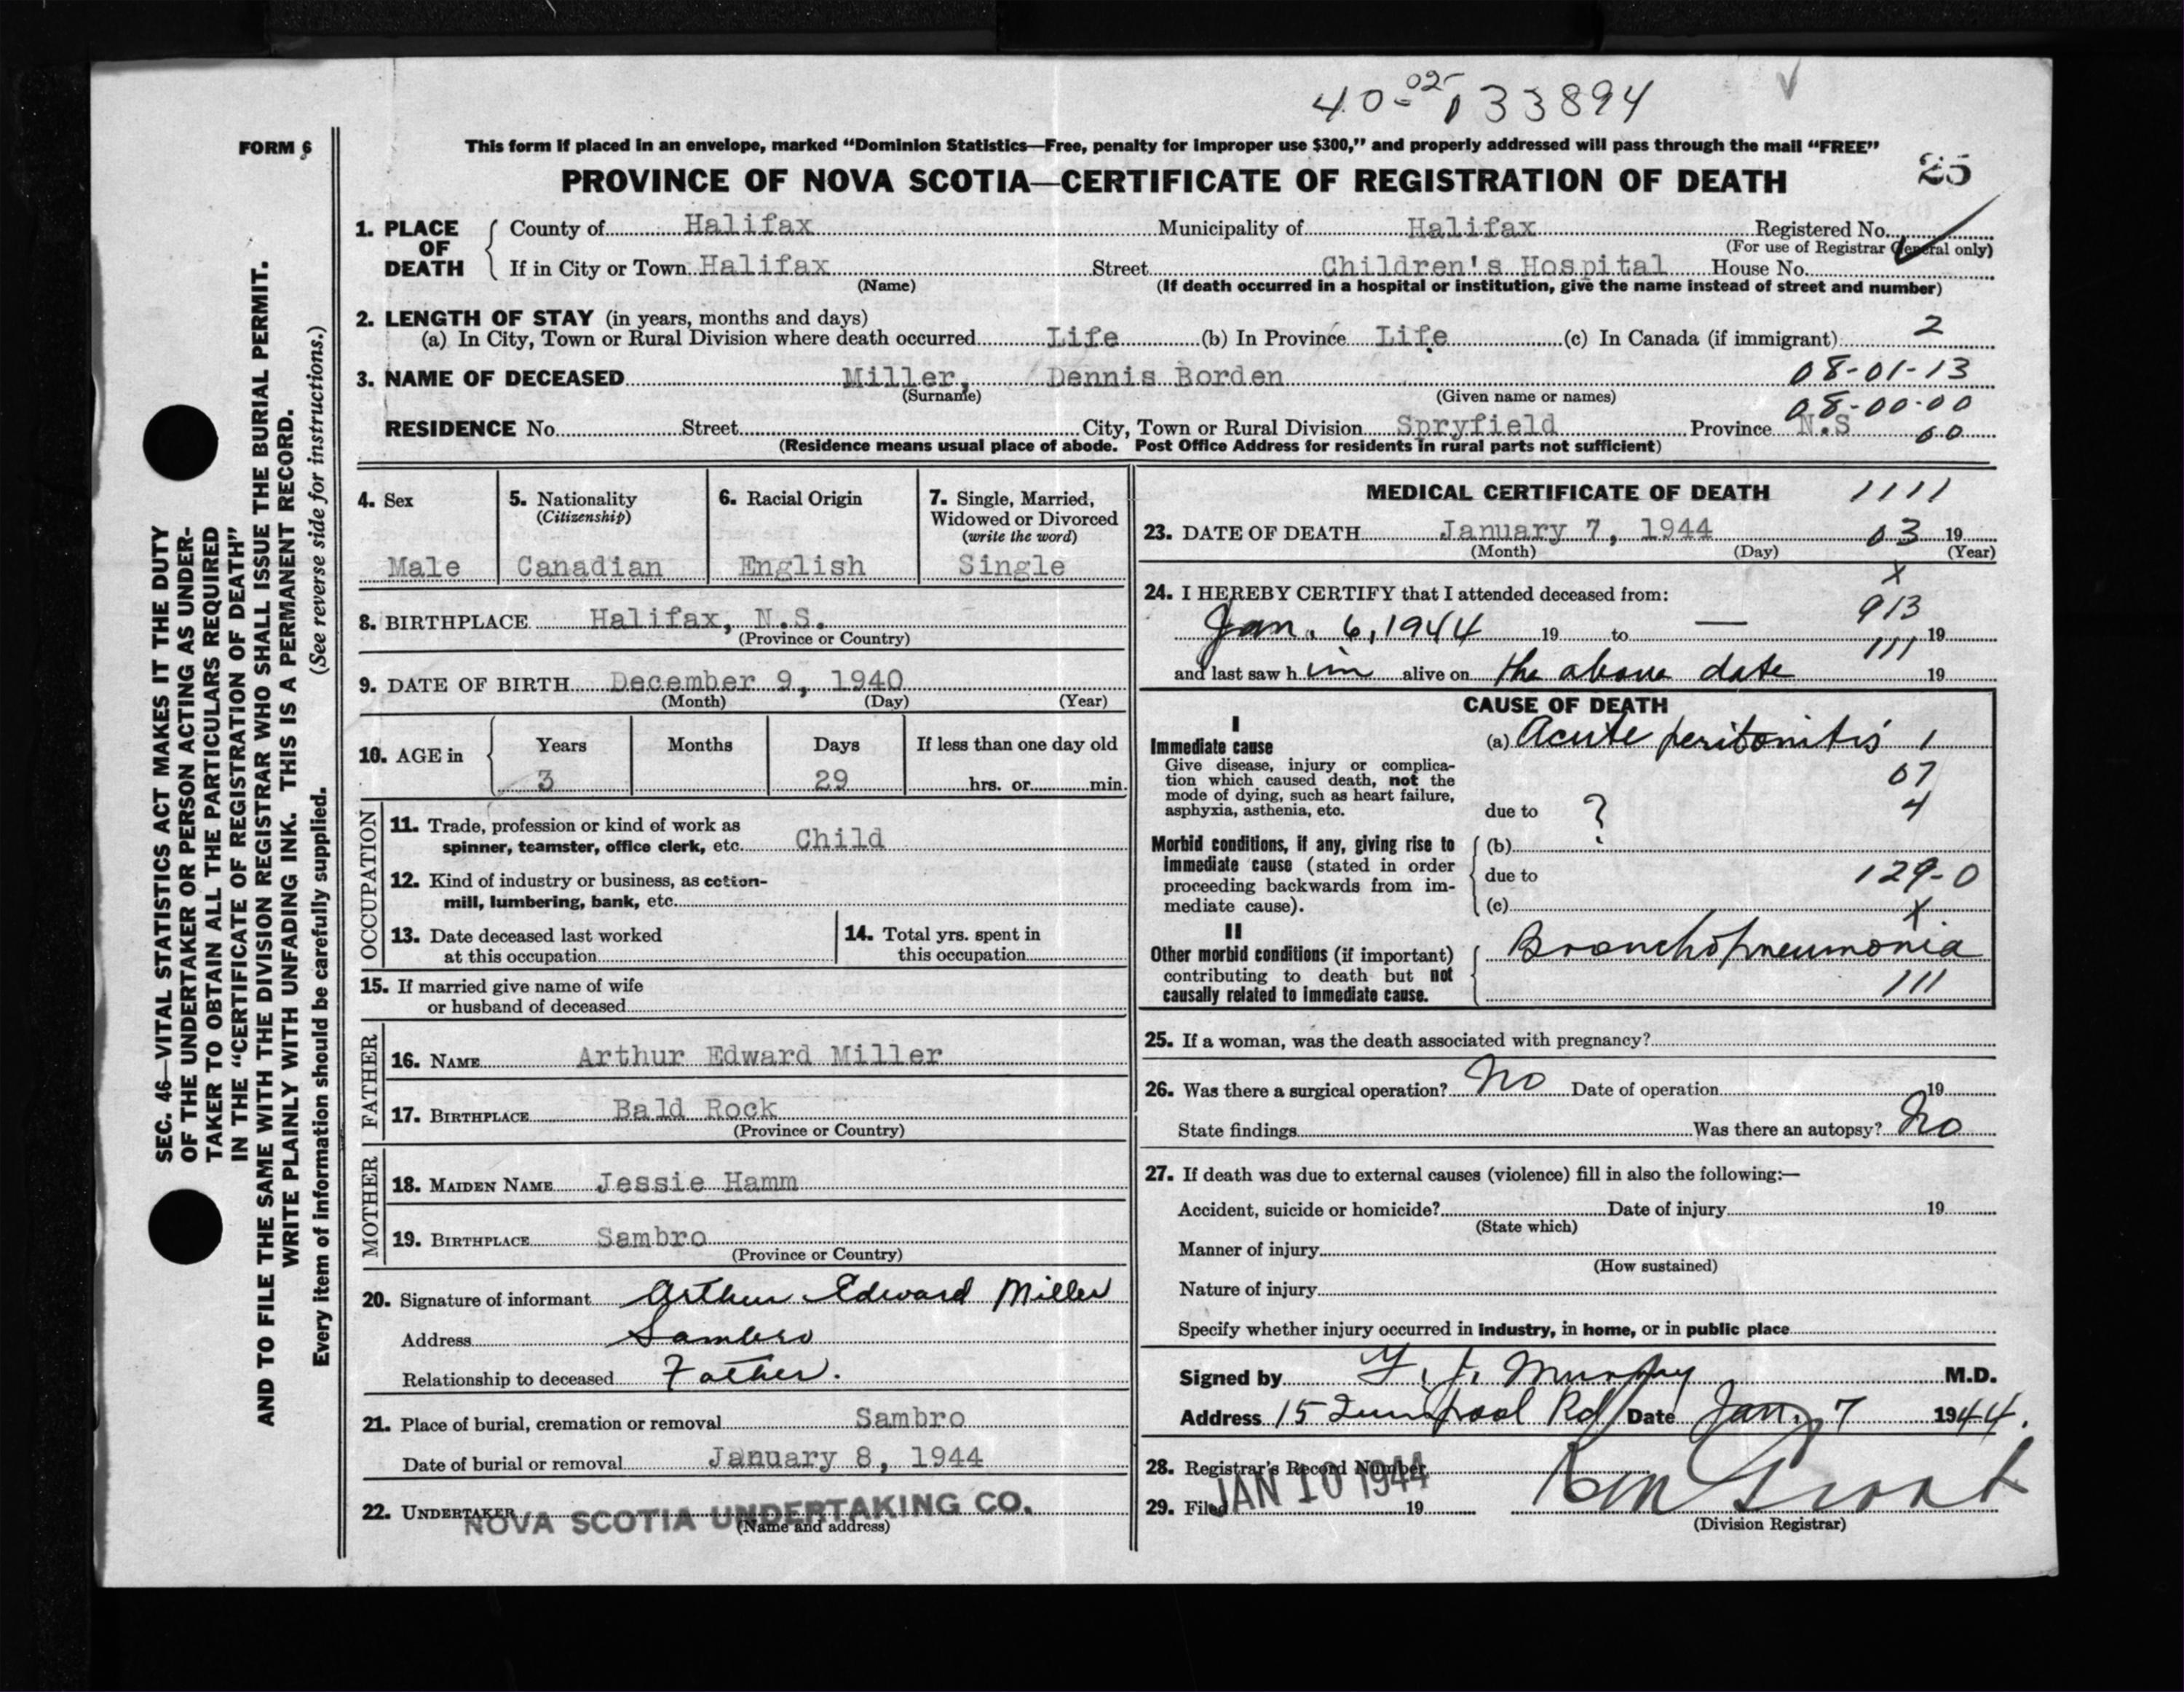 40-02 133894
FORM 6
This form if placed in an envelope, marked “Dominion Statistics—Free, penalty for improper use $300,” and properly addressed will pass through the mail “FREE”
PROVINCE OF NOVA SCOTIA—CERTIFICATE OF REGISTRATION OF DEATH
25
1. PLACE OF DEATH County of Halifax Municipality of Halifax Registered No.
(For use of Registrar General only)
If in City or Town Halifax Street Children's Hospital House No.
(Name) (If death occurred in a hospital or institution, give the name instead of street and number)
2. LENGTH OF STAY (in years, months and days)
(a) In City, Town or Rural Division where death occurred Life (b) In Province Life (c) In Canada (if immigrant) 2
3. NAME OF DECEASED Miller, Dennis Borden 08-01-13
(Surname) (Given name or names) 08-00-00
RESIDENCE No. Street City, Town or Rural Division Spryfield Province N.S 60
(Residence means usual place of abode. Post Office Address for residents in rural parts not sufficient)
SEC. 46—VITAL STATISTICS ACT MAKES IT THE DUTY
OF THE UNDERTAKER OR PERSON ACTING AS UNDER-
TAKER TO OBTAIN ALL THE PARTICULARS REQUIRED
IN THE “CERTIFICATE OF REGISTRATION OF DEATH”
AND TO FILE THE SAME WITH THE DIVISION REGISTRAR WHO SHALL ISSUE THE BURIAL PERMIT.
WRITE PLAINLY WITH UNFADING INK. THIS IS A PERMANENT RECORD.
Every item of information should be carefully supplied. (See reverse side for instructions.)
4. Sex
Male
5. Nationality
(Citizenship)
Canadian
6. Racial Origin
English
7. Single, Married,
Widowed or Divorced
(write the word)
Single
8. BIRTHPLACE Halifax, N.S.
(Province or Country)
9. DATE OF BIRTH December 9, 1940
(Month) (Day) (Year)
10. AGE in Years Months Days If less than one day old
3 29 hrs. or min.
OCCUPATION
11. Trade, profession or kind of work as
spinner, teamster, office clerk, etc. Child
12. Kind of industry or business, as cotton-
mill, lumbering, bank, etc.
13. Date deceased last worked
at this occupation
14. Total yrs. spent in
this occupation
15. If married give name of wife
or husband of deceased
FATHER
16. NAME Arthur Edward Miller
17. BIRTHPLACE Bald Rock
(Province or Country)
MOTHER
18. MAIDEN NAME Jessie Hamm
19. BIRTHPLACE Sambro
(Province or Country)
20. Signature of informant Arthur Edward Miller
Address Sambro
Relationship to deceased Father.
21. Place of burial, cremation or removal Sambro
Date of burial or removal January 8, 1944
22. UNDERTAKER NOVA SCOTIA UNDERTAKING CO.
(Name and address)
MEDICAL CERTIFICATE OF DEATH 1111
23. DATE OF DEATH January 7, 1944 03 19
(Month) (Day) (Year)
x
24. I HEREBY CERTIFY that I attended deceased from:
913
Jan. 6, 1944 19 to — 19
111
and last saw him alive on the above date 19
CAUSE OF DEATH
I
Immediate cause
Give disease, injury or complica-
tion which caused death, not the
mode of dying, such as heart failure,
asphyxia, asthenia, etc.
(a) Acute peritonitis 1
07
due to ? 4
Morbid conditions, if any, giving rise to
immediate cause (stated in order
proceeding backwards from im-
mediate cause).
(b)
due to 129-0
(c) x
II
Other morbid conditions (if important)
contributing to death but not
causally related to immediate cause.
Bronchopneumonia
111
25. If a woman, was the death associated with pregnancy?
26. Was there a surgical operation? No Date of operation 19
State findings Was there an autopsy? No
27. If death was due to external causes (violence) fill in also the following:—
Accident, suicide or homicide? Date of injury 19
(State which)
Manner of injury
(How sustained)
Nature of injury
Specify whether injury occurred in industry, in home, or in public place
Signed by Murphy M.D.
Address 15 Rd Date Jan. 7 1944.
28. Registrar's Record Number
29. Filed JAN 10 1944 19
(Division Registrar)